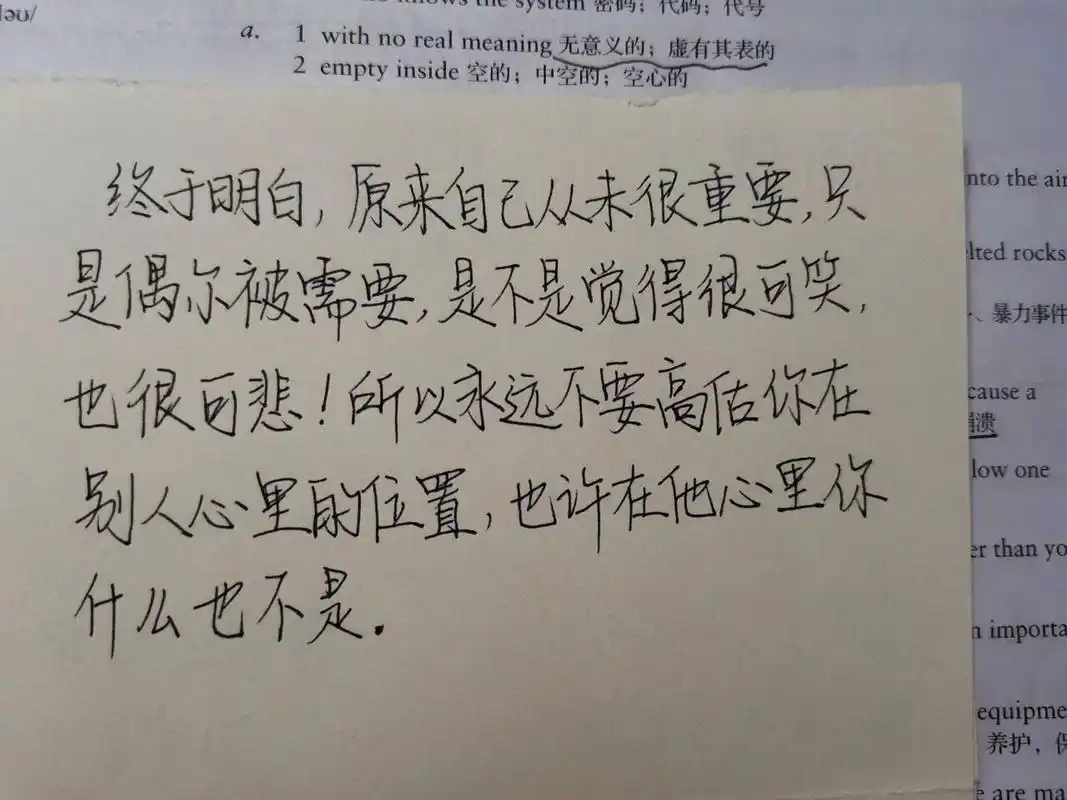 knows the system 密码；代码；代号
ləu/
a. 1 with no real meaning 无意义的；虚有其表的
2 empty inside 空的；中空的；空心的
终于明白，原来自己从未很重要，只
是偶尔被需要，是不是觉得很可笑，
也很可悲！所以永远不要高估你在
别人心里的位置，也许在他心里你
什么也不是.
into the air
elted rocks
、暴力事件
cause a
崩溃
low one
er than yo
n importa
equipme
养护，保
e are ma